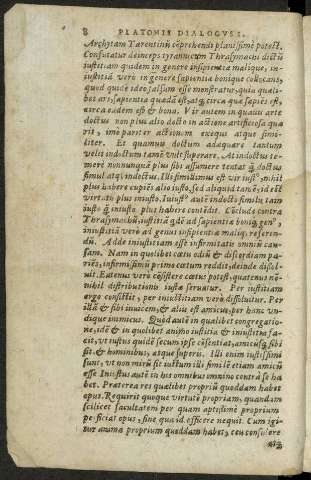 8 PLATONIS DIALOGVS I.
Archytam Tarentinū cōprehendi planissimè potest.
Confutatur deinceps tyrannicum Thrasymachi dictū
iustitiam quidem in genere insipientiæ malique, in-
iustitiā verò in genere sapientiæ bonique collocans,
quod quidē ideo falsum esse monstratur, quia qualibet
ars, sapientia quædā est, atq; circa quæ sapiēs est,
circa eadem est & bona. Vir autem in quauis arte
doctus non plus alio docto in actione artificiosa quæ
rit, imò pariter actionem exequi atque simi-
liter. Et quamuis doctum adæquare tantum
velit indoctum tamē vult superare. At indoctus te-
merè nonnunquā plus sibi assumere tentat q̃ doctus
simul atq; indoctus. Illi simillimus est vir iust⁹, nihil
plus habere cupiēs alio iusto, sed aliquid tamē, id est
virtutis plus iniusto. Iniust⁹ autē indocto similis tam
iusto q̃ iniusto plus habere cōtēdit. Cōclude contra
Thrasymachū, iustitiā q̃dē ad sapientiæ boniq; gen⁹,
iniustitiā verò ad genus insipientiæ maliq; referen-
dū. Adde iniustitiam esse infirmitatis omniū cau-
sam. Nam in quolibet cœtu odiū & discordiam pa-
riēs, infirmissimū primò cœtum reddit, deinde dissol-
uit. Eatenus verò cōsistere cœtus potest, quatenus nō-
nihil distributionis iustæ seruatur. Per iustitiam
ergo consistit, per iniustitiam verò dissoluitur. Per
illā & sibi inuicem, & aliis est amicus, per hanc vn-
dique inimicus. Quod autē in qualibet congregatio-
ne, idē & in quolibet animo iustitia & iniustitia fa-
cit, vt iustus quidē secum ipse cōsentiat, amicusq; sibi
sit & hominibus, atque superis. Illi enim iustissimi
sunt, vt non mirū sit iustum illis simile etiam amicū
esse Iniustus autē in his omnibus omnino contrà se ha
bet. Præterea res quælibet propriū quoddam habet
opus. Requirit quoque virtutē propriam, quandam
scilicet facultatem per quam aptissimè proprium
perficiat opus, sine qua id efficere nequit. Cum igi-
tur anima proprium quoddam habet, ceu consulere